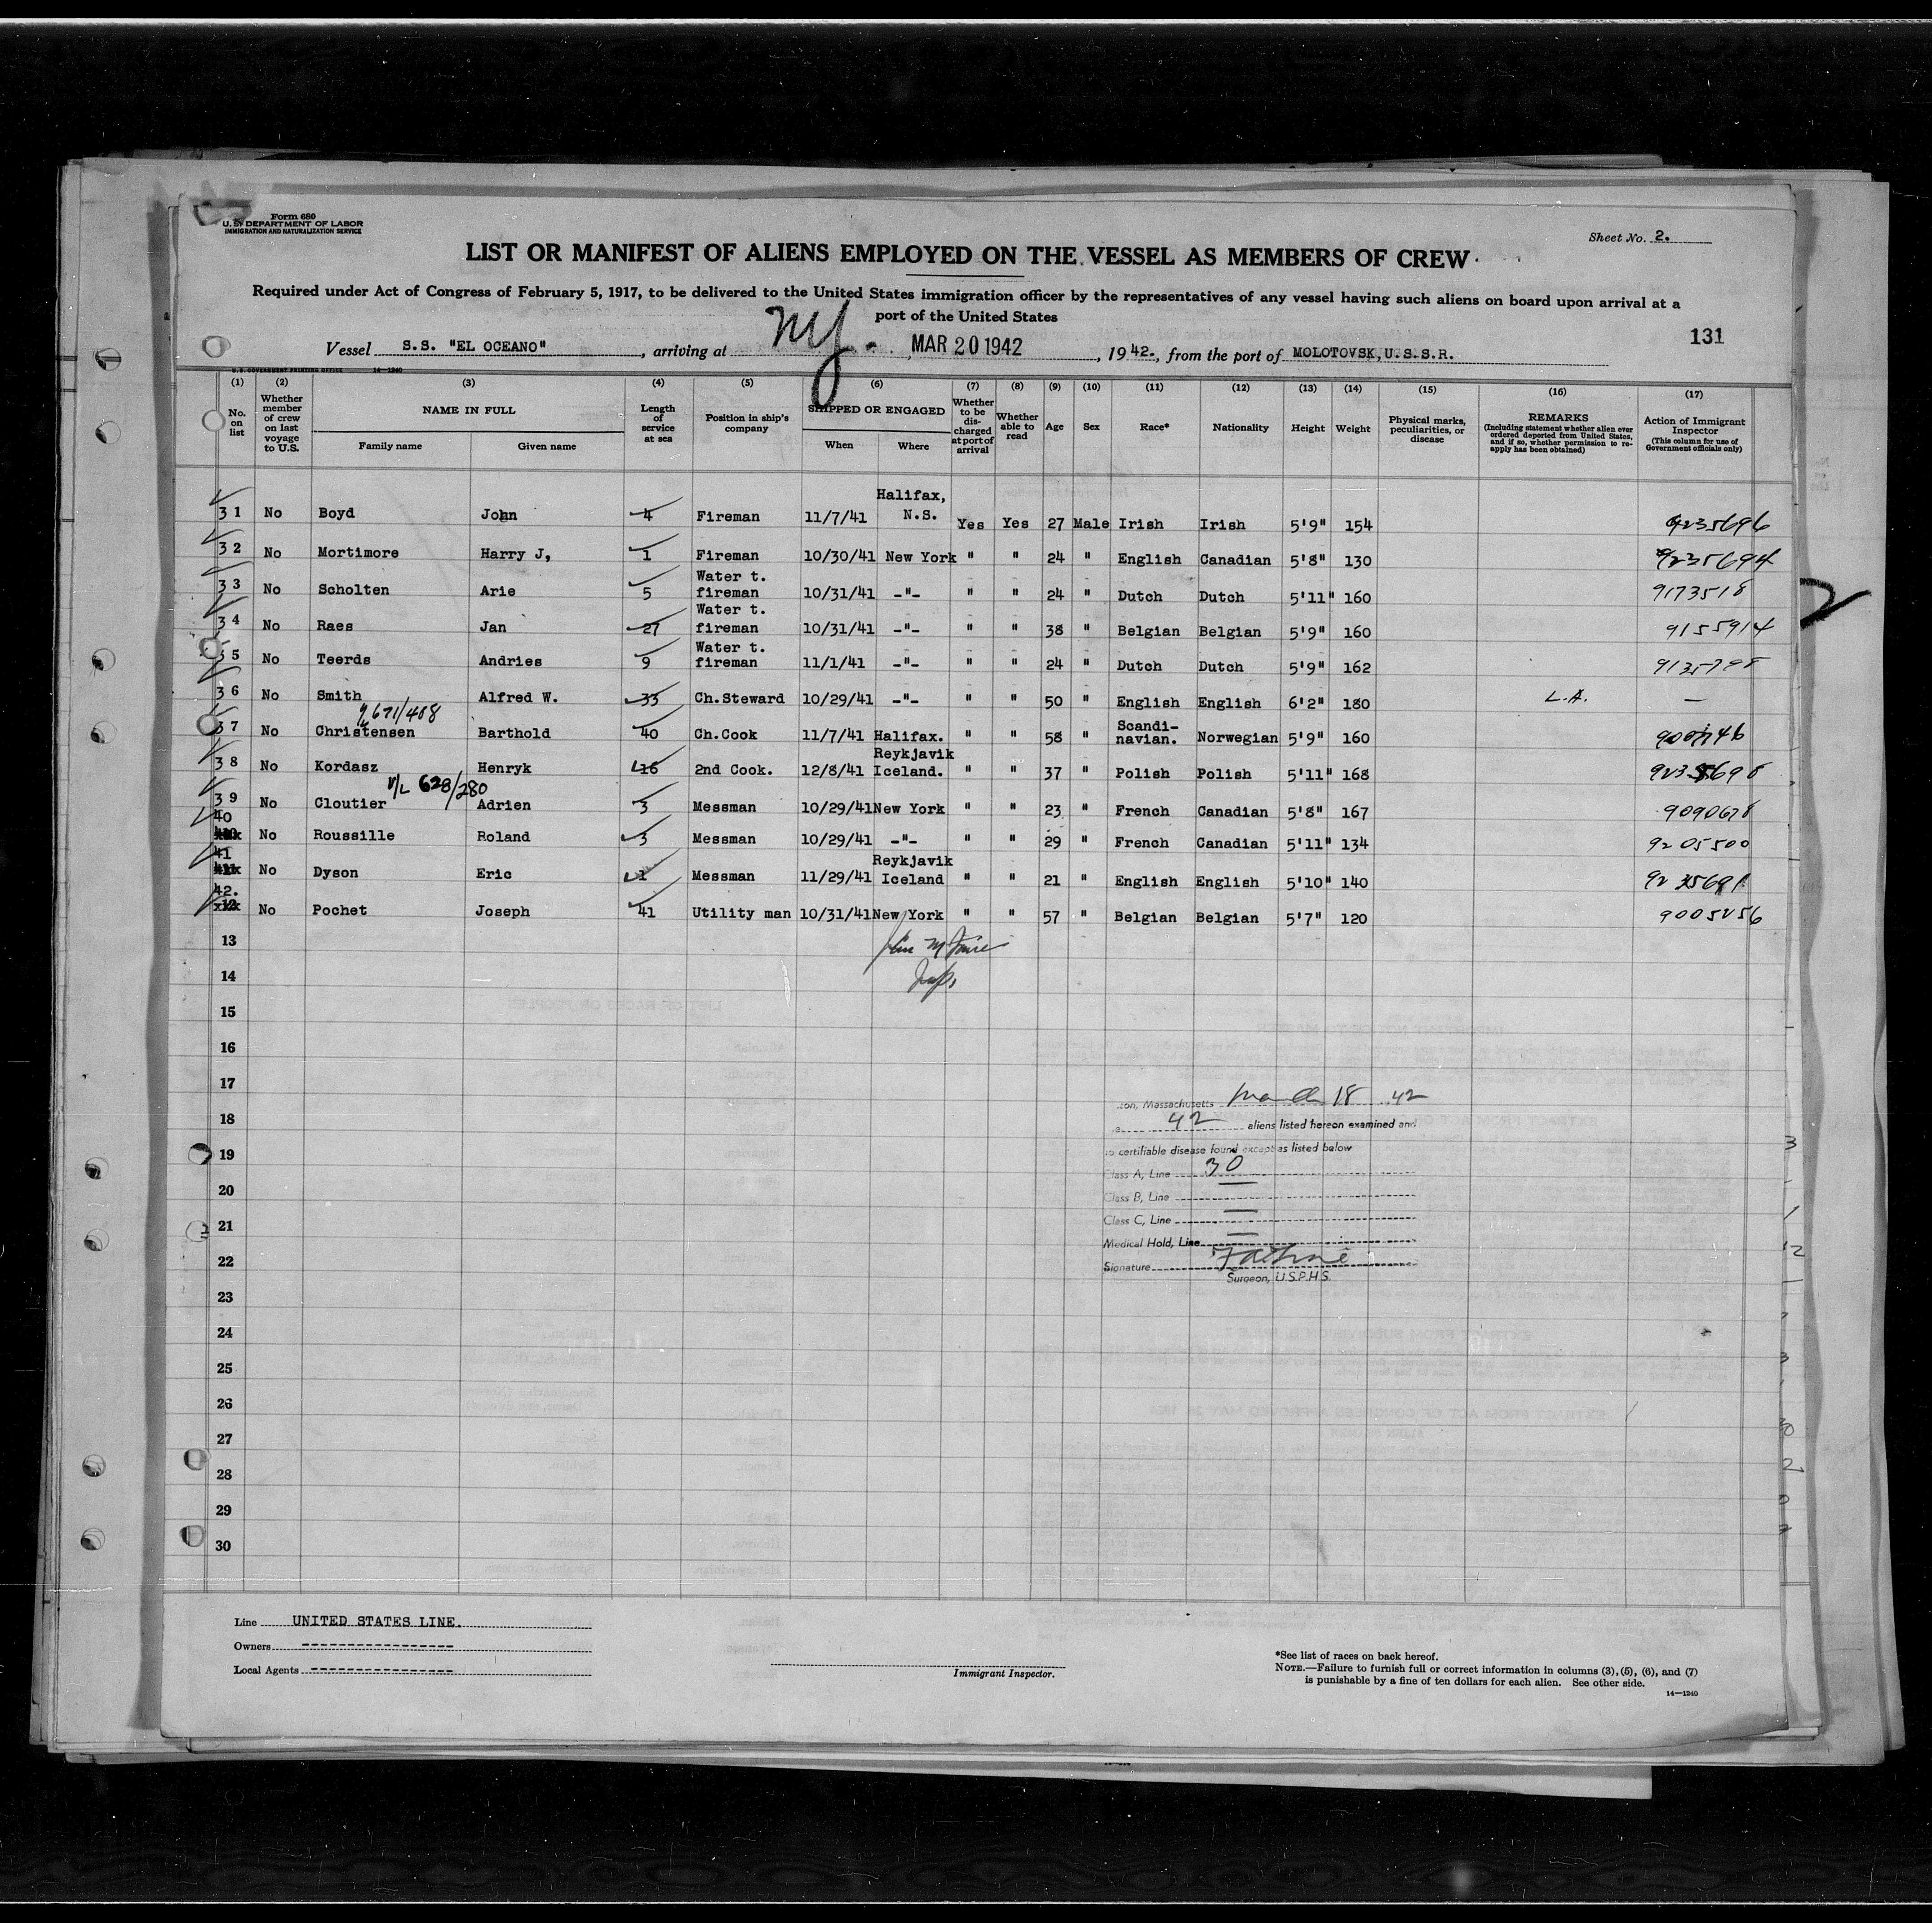 Form 680
U. S. DEPARTMENT OF LABOR
IMMIGRATION AND NATURALIZATION SERVICE
Sheet No. 2.
LIST OR MANIFEST OF ALIENS EMPLOYED ON THE VESSEL AS MEMBERS OF CREW
Required under Act of Congress of February 5, 1917, to be delivered to the United States immigration officer by the representatives of any vessel having such aliens on board upon arrival at a
port of the United States
131
Vessel S.S. "EL OCEANO", arriving at NY. MAR 20 1942, 1942., from the port of MOLOTOVSK, U.S.S.R.
U.S. GOVERNMENT PRINTING OFFICE 14—1240
(1) (2) (3) (4) (5) (6) (7) (8) (9) (10) (11) (12) (13) (14) (15) (16) (17)
No. on list Whether member of crew on last voyage to U.S. NAME IN FULL Family name Given name Length of service at sea Position in ship's company SHIPPED OR ENGAGED When Where Whether to be discharged at port of arrival Whether able to read Age Sex Race* Nationality Height Weight Physical marks, peculiarities, or disease REMARKS (Including statement whether alien ever ordered deported from United States, and if so, whether permission to reapply has been obtained) Action of Immigrant Inspector (This column for use of Government officials only)
31 No Boyd John 4 Fireman 11/7/41 Halifax, N.S. Yes Yes 27 Male Irish Irish 5'9" 154 9235696
32 No Mortimore Harry J, 1 Fireman 10/30/41 New York " " 24 " English Canadian 5'8" 130 9235694
33 No Scholten Arie 5 Water t. fireman 10/31/41 -"- " " 24 " Dutch Dutch 5'11" 160 9173518
34 No Raes Jan 27 Water t. fireman 10/31/41 -"- " " 38 " Belgian Belgian 5'9" 160 9155914
35 No Teerds Andries 9 Water t. fireman 11/1/41 -"- " " 24 " Dutch Dutch 5'9" 162
36 No Smith Alfred W. 33 Ch.Steward 10/29/41 -"- " " 50 " English English 6'2" 180 L.A. —
671/408
37 No Christensen Barthold 40 Ch.Cook 11/7/41 Halifax. " " 58 " Scandinavian. Norwegian 5'9" 160
38 No Kordasz Henryk 16 2nd Cook. 12/8/41 Reykjavik Iceland. " " 37 " Polish Polish 5'11" 168
V/L 628/280
39 No Cloutier Adrien 3 Messman 10/29/41 New York " " 23 " French Canadian 5'8" 167
40 No Roussille Roland 3 Messman 10/29/41 -"- " " 29 " French Canadian 5'11" 134 9205500
41 No Dyson Eric 1 Messman 11/29/41 Reykjavik Iceland " " 21 " English English 5'10" 140 9235691
42. No Pochet Joseph 41 Utility man 10/31/41 New York " " 57 " Belgian Belgian 5'7" 120
13
14
15
16
17
18
19
20
21
22
23
24
25
26
27
28
29
30
ton, Massachusetts March 18 42
42 aliens listed hereon examined and
certifiable disease found except as listed below
Class A, Line 30
Class B, Line
Class C, Line
Medical Hold, Line
Signature
Surgeon, U.S.P.H.S.
2
Line UNITED STATES LINE.
Owners -----------------
Local Agents -----------------
Immigrant Inspector.
*See list of races on back hereof.
NOTE.—Failure to furnish full or correct information in columns (3), (5), (6), and (7)
is punishable by a fine of ten dollars for each alien. See other side.
14—1240